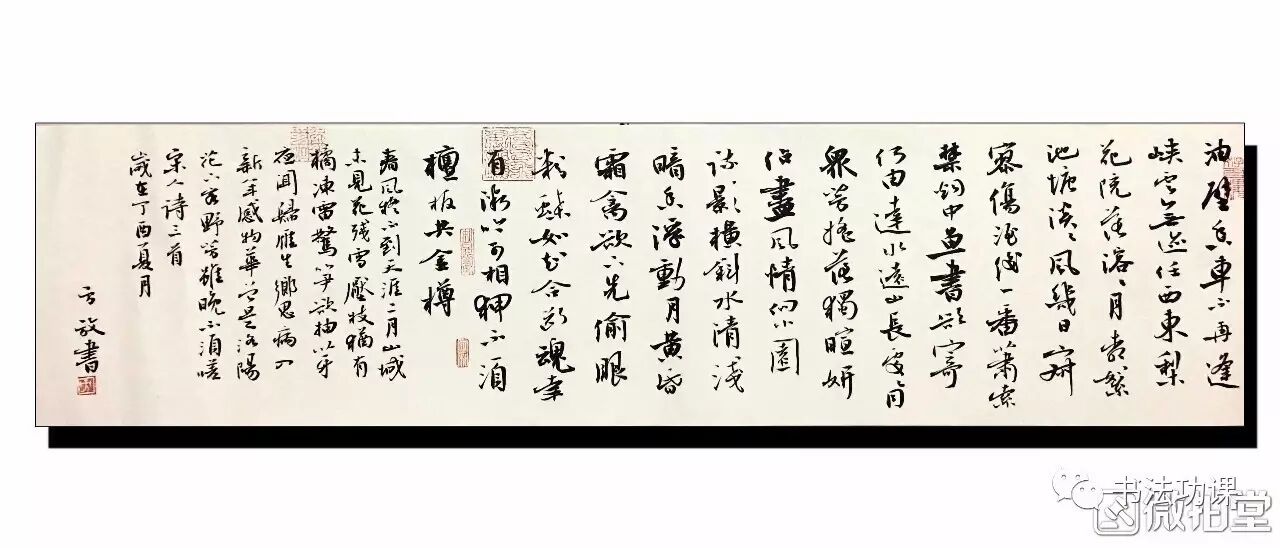 油壁香車不再逢
峽雲無迹任西東梨
花院落溶々月柳絮
池塘淡々風幾日寂
寥傷酒後一番蕭索
禁烟中魚書欲寄
何由達水遠山長處々同
眾芳搖落獨暄妍
佔盡風情向小園
疏影橫斜水清淺
暗香浮動月黃昏
霜禽欲下先偷眼
粉蝶如知合斷魂幸
有微吟可相狎不須
檀板共金樽
春風疑不到天涯二月山城
未見花殘雪壓枝猶有
橘凍雷驚笋欲抽芽
夜聞歸雁生鄉思病入
新年感物華曾是洛陽
花下客野芳雖晚不須嗟
宋人詩三首
歲在丁酉夏月
書
书法功课
微拍堂